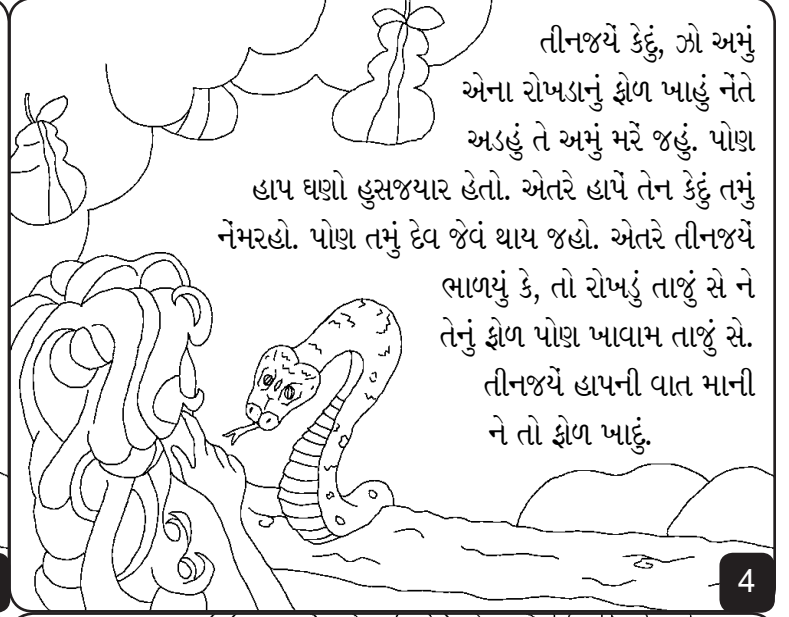 તીનજયેં કેદું, ઝો અમું
એના રોખડાનું ફોળ ખાહું નેંતે
અડહું તે અમું મરેં જહું. પોણ
હાપ ઘણો હુસજયાર હેતો. એતરે હાપેં તેન કેદું તમું
નેંમરહો. પોણ તમું દેવ જેવં થાય જહો. એતરે તીનજયેં
ભાળયું કે, તો રોખડું તાજું સે ને
તેનું ફોળ પોણ ખાવામ તાજું સે.
તીનજયેં હાપની વાત માની
ને તો ફોળ ખાદું.
4